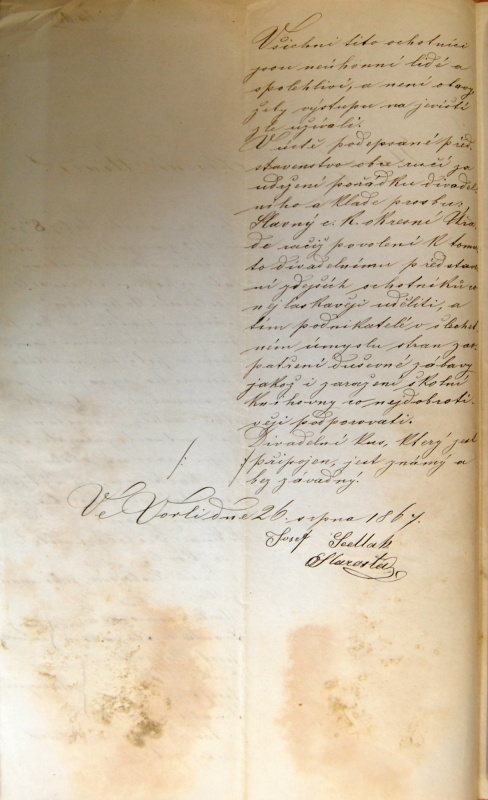 Všichni tito ochotníci
jsou neúhonní lidé a
spolehliví, a není obavy
žeby výstupu na jevišti
zle užívali.
V úctě podepsaní před-
stavenstvo obce ručí za
udržení pořádku divadel-
ního a klade prosbu:
Slavný c. k. okresní Úřa-
de račiž povolení k tomu-
to divadelnímu představe-
ní zdejších ochotníků co
nejlaskavěji uděliti, a
tím podnikatelé v šlechet-
ném úmyslu stran zao-
patření duševné zábavy
jakož i zaražení školní
knihovny co nejdobroti-
věji podporovati.
Divadelní kus, který jest
připojen, jest známý a
bez závadný.
Ve dne 26. srpna 1867.
Josef Sedlak
Starosta